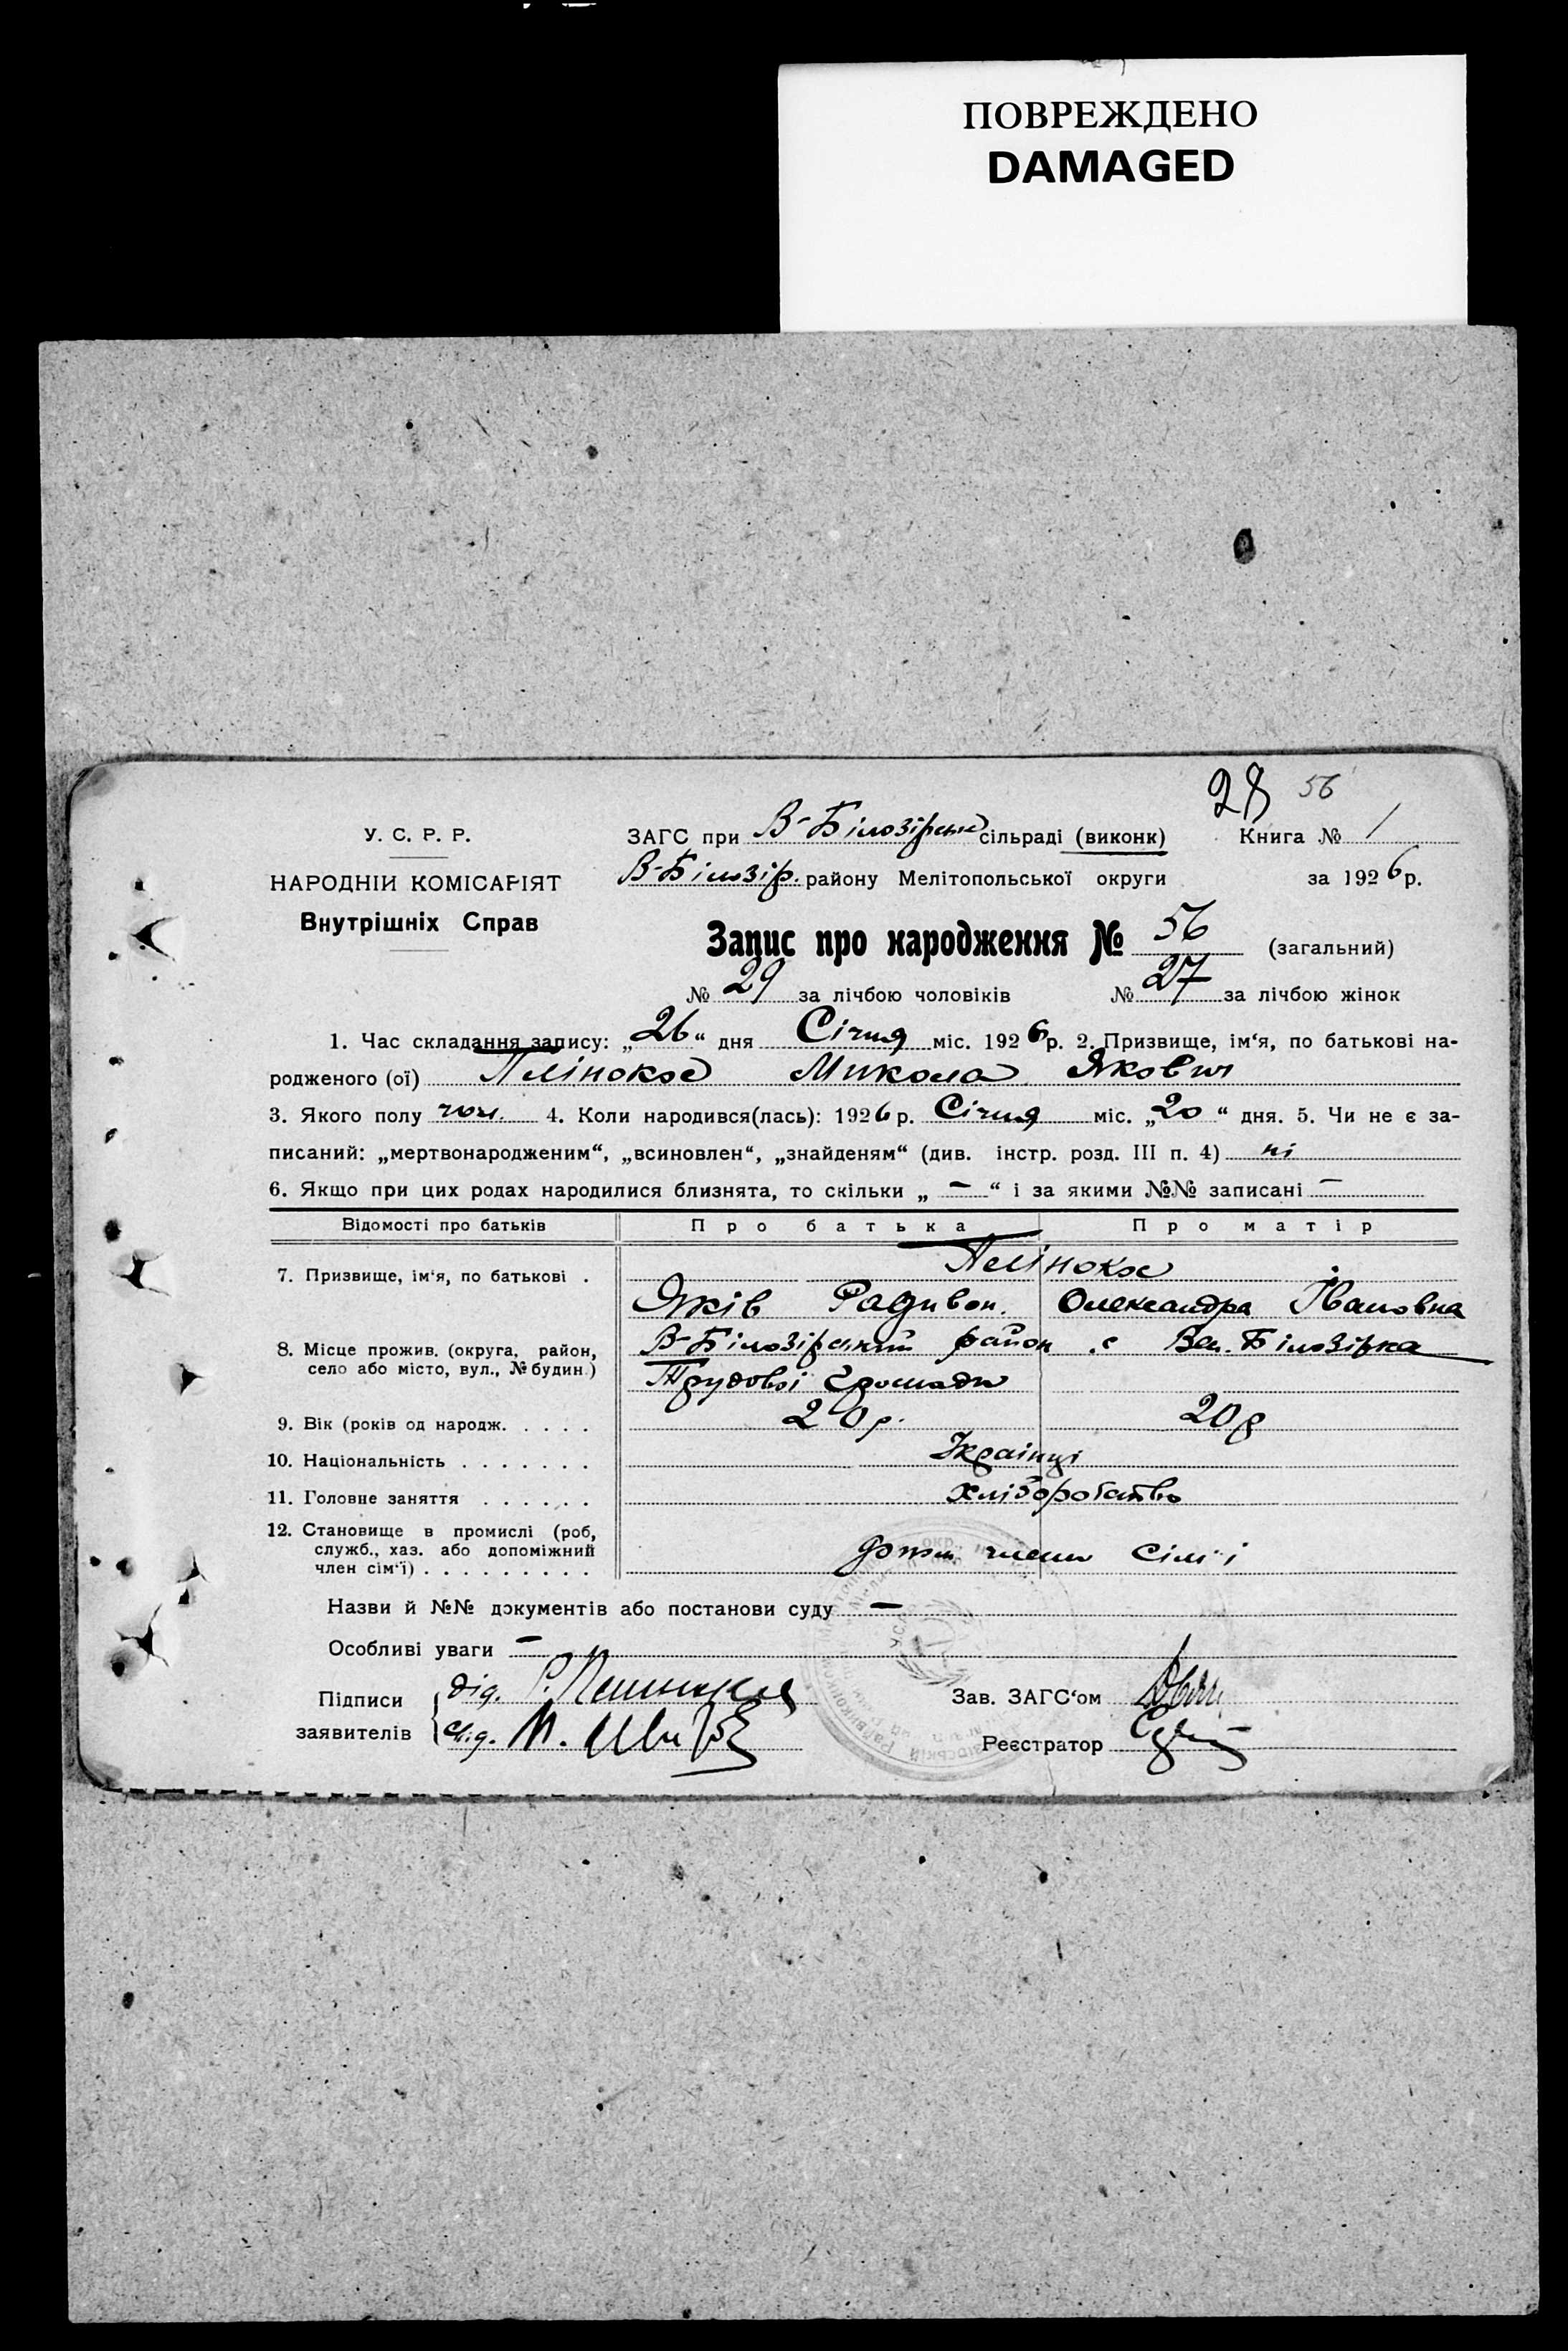 ПОВРЕЖДЕНО
DAMAGED
28 56
У. С. Р. Р.
НАРОДНІЙ КОМІСАРІЯТ
Внутрішніх Справ
ЗАГС при В-Білозірськ сільраді (виконк) Книга № 1
В-Білозір. району Мелітопольської округи за 1926 р.
Запис про народження № 56 (загальний)
№ 29 за лічбою чоловіків № 27 за лічбою жінок
1. Час складання запису: „26“ дня Січня міс. 1926 р. 2. Призвище, ім‘я, по батькові на-
родженого (ої) Пелінокос Микола Якович
3. Якого полу чол. 4. Коли народився(лась): 1926 р. Січня міс. „20“ дня. 5. Чи не є за-
писаний: „мертвонародженим“, „всиновлен“, „знайденям“ (див. інстр. розд. III п. 4) ні
6. Якщо при цих родах народилися близнята, то скільки „ — “ і за якими №№ записані —
Відомості про батьків Про батька Про матір
7. Призвище, ім‘я, по батькові . Пелінокос
Яків Радивон. Олександра Івановна
8. Місце прожив. (округа, район, В-Білозірський район с Вел. Білозірка
село або місто, вул., № будин.) Трудової Громади
9. Вік (років од народж. . . . . 20 р. 20 р
10. Національність . . . . . . . Українці
11. Головне заняття . . . . . . Хліборобство
12. Становище в промислі (роб,
служб., хаз. або допоміжний
член сім‘ї) . . . . . . . . . допом члени сім'ї
Назви й №№ документів або постанови суду —
Особливі уваги —
Підписи дід. Р.
заявителів
Зав. ЗАГС‘ом
Реєстратор